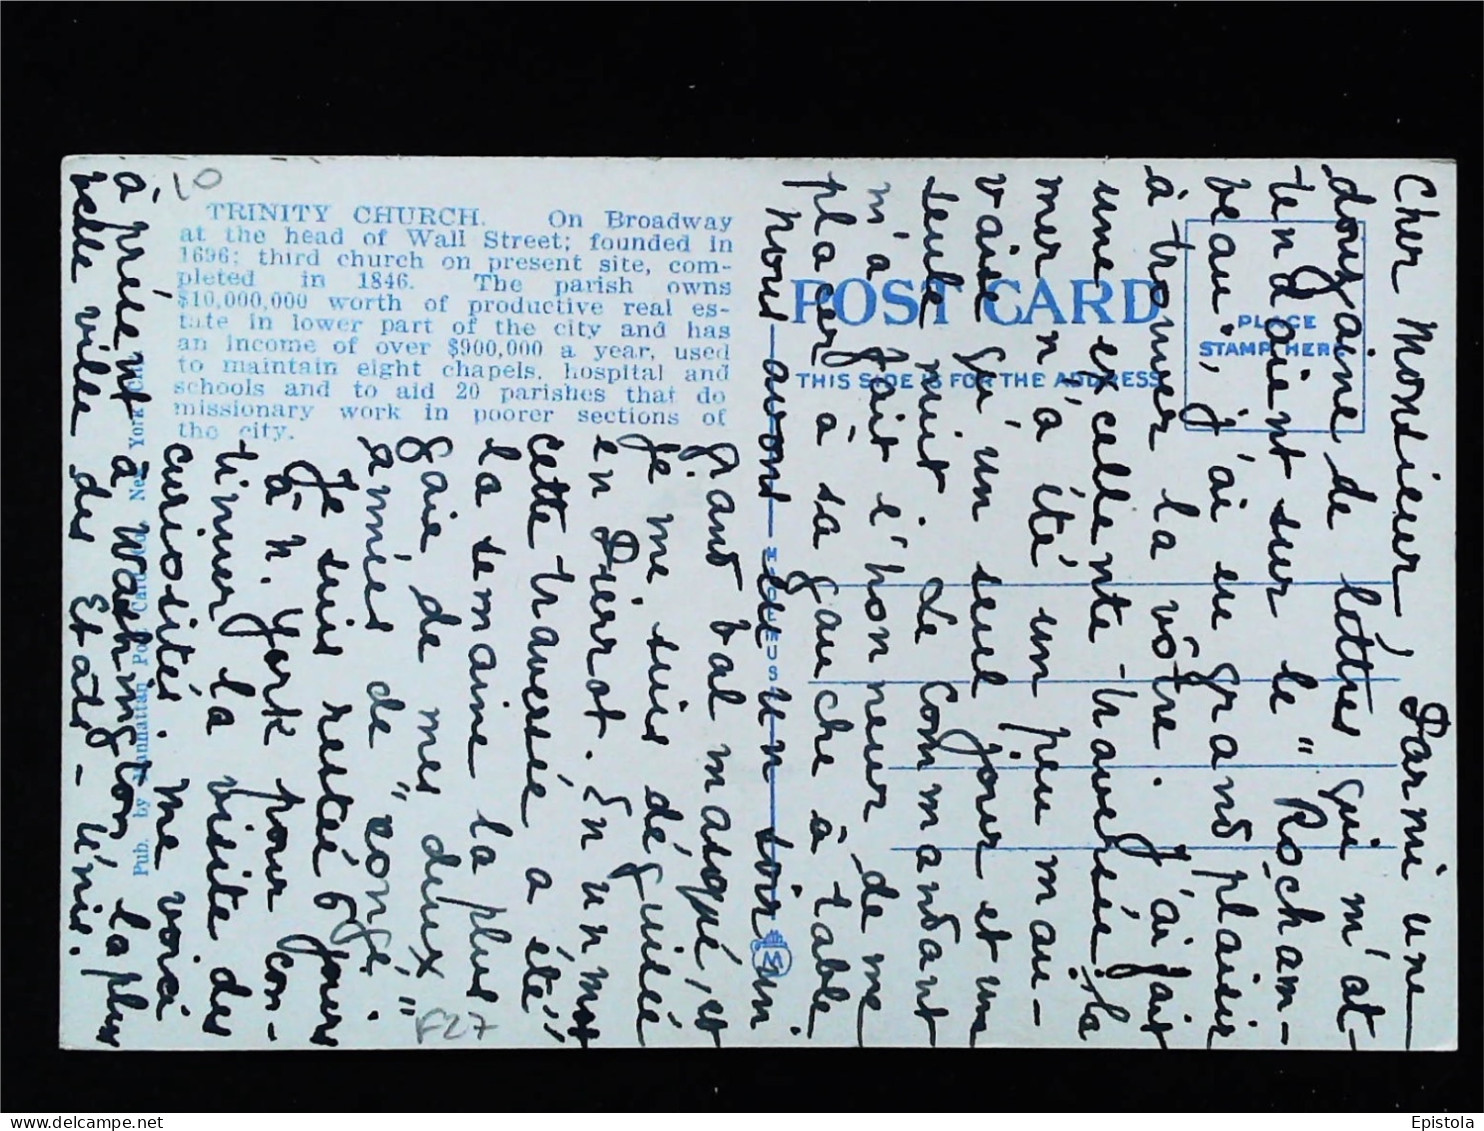 10
TRINITY CHURCH. On Broadway
at the head of Wall Street; founded in
1696; third church on present site, com-
pleted in 1846. The parish owns
$10,000,000 worth of productive real es-
tate in lower part of the city and has
an income of over $900,000 a year, used
to maintain eight chapels, hospital and
schools and to aid 20 parishes that do
missionary work in poorer sections of
the city.
Pub. by Manhattan Post Card Co., New York City
POST CARD
THIS SIDE IS FOR THE ADDRESS
PLACE
STAMP HERE
M
Cher Monsieur Parmi une
douzaine de lettres qui m'at-
tendaient sur le "Rocham-
beau", j'ai eu grand plaisir
à trouver la vôtre. J'ai fait
une excellente traversée; la
mer n'a été un peu mau-
vaise qu'un seul jour et une
seule nuit. Le Commandant
m'a fait l'honneur de me
placer à sa gauche à table
Nous avons eu un soir un
grand bal masqué, et
je me suis déguisée
en Pierrot. En un mot
cette traversée a été
la semaine la plus
gaie de mes deux
années de "congé."
Je suis resté 6 jours
à N. York pour con-
tinuer la visite des
curiosités. Me voici
à présent à Washington la plus
belle ville des Etats-Unis.
F27
Epistola
delcampe.net